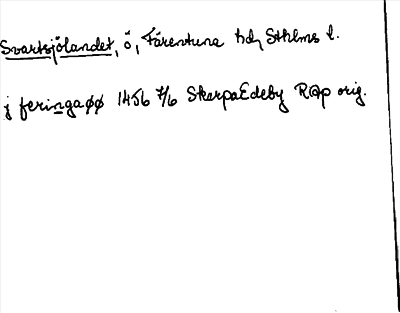 Svartsjölandet, ö, Färentuna hd, Sthlms l.
j feringaøø 1456 7/6 SkerpaEdeby RAp orig.